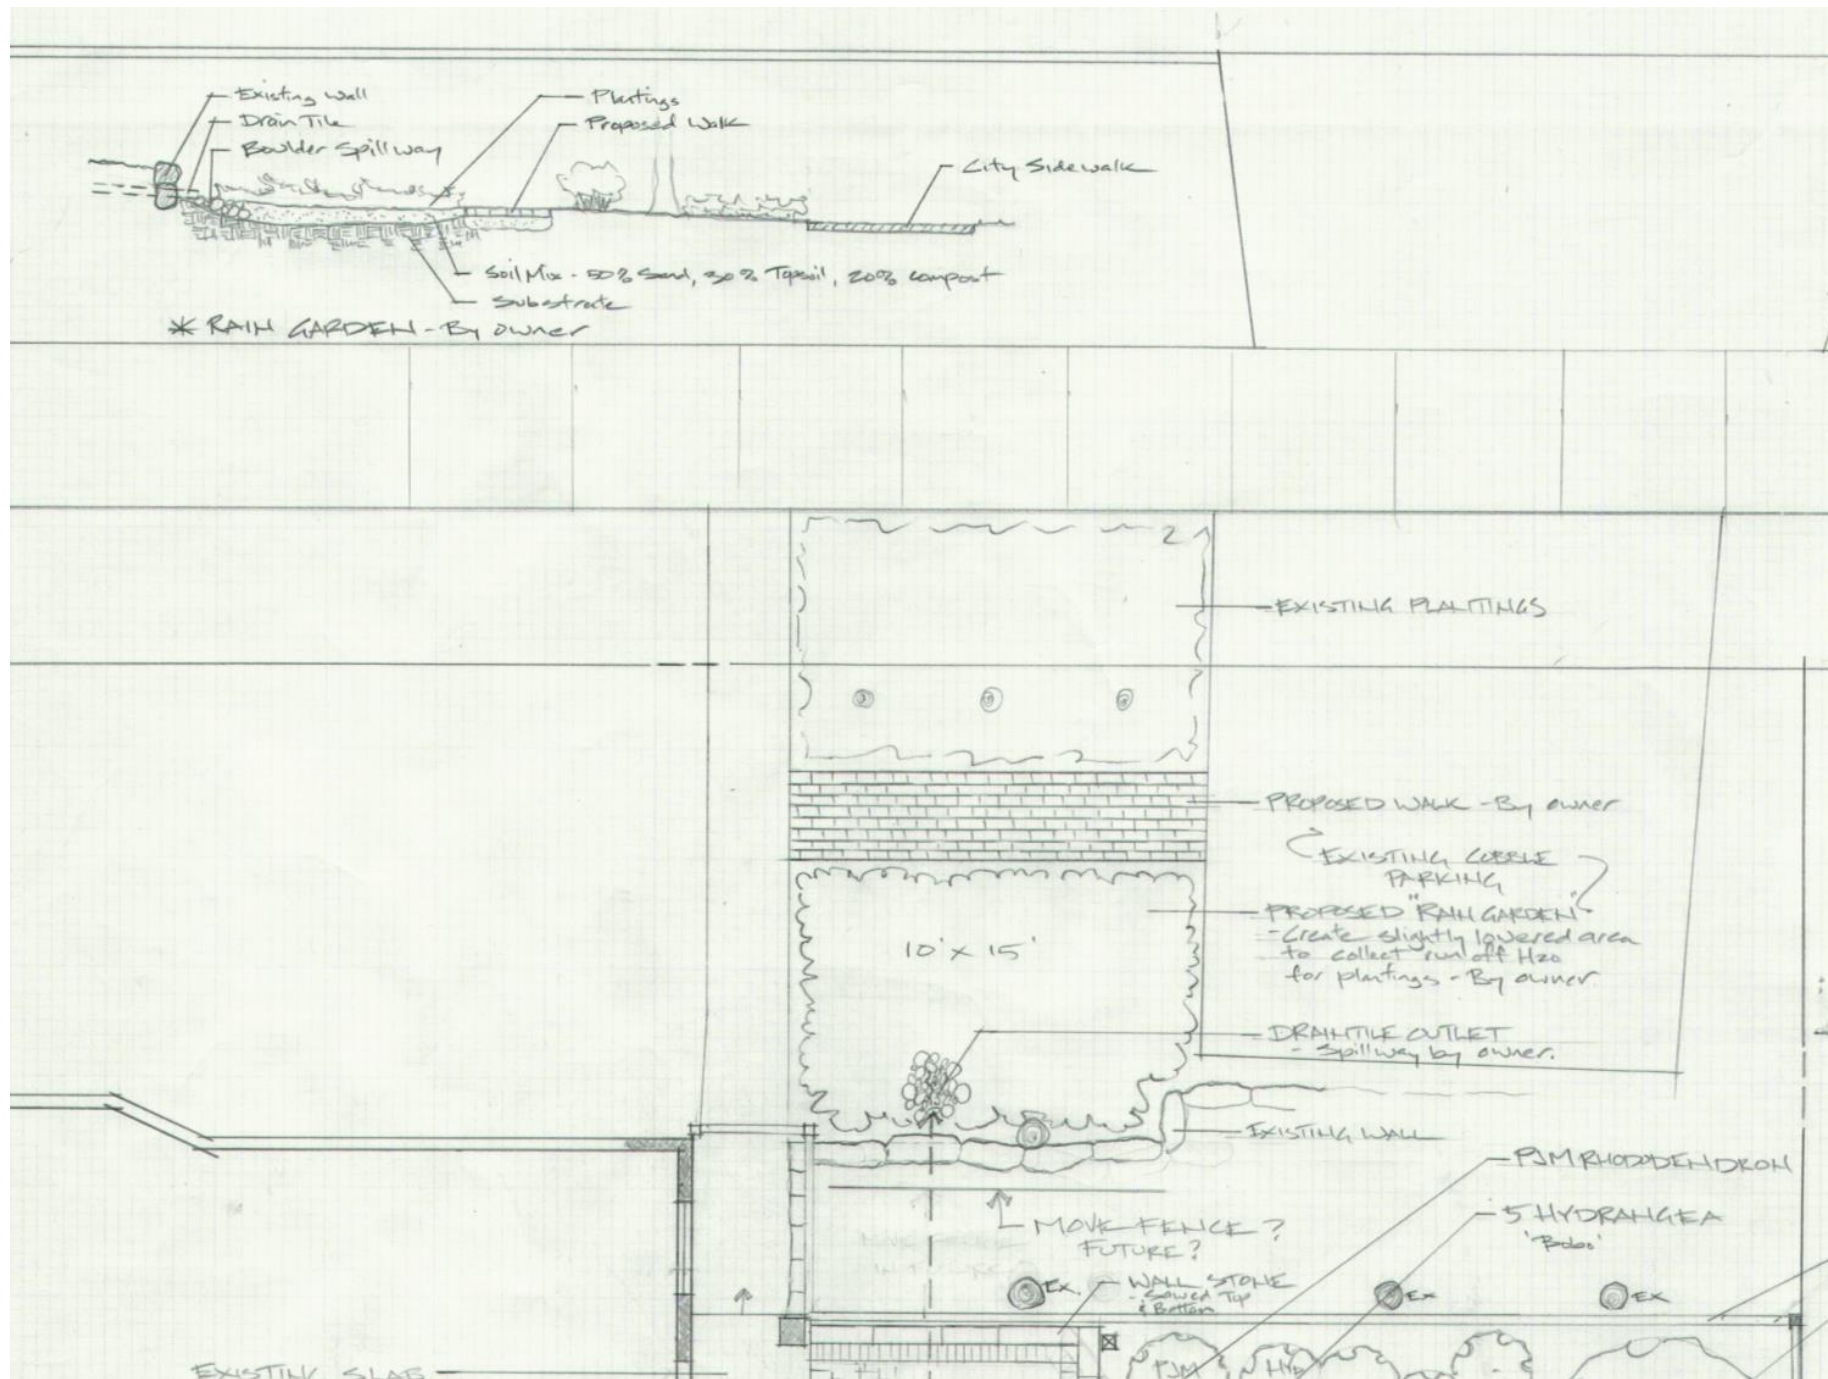 Existing Wall
Drain Tile
Boulder Spillway
Plantings
Proposed Walk
City Sidewalk
Soil Mix - 50% Sand, 30% Topsoil, 20% compost
Substrate
* RAIN GARDEN - By owner
EXISTING PLANTINGS
PROPOSED WALK - By owner
EXISTING COBBLE
PARKING
PROPOSED "RAIN GARDEN"
- Create slightly lowered area
to collect run off H2O
for plantings - By owner
10' x 15'
DRAINTILE OUTLET
- Spillway by owner.
EXISTING WALL
PJM RHODODENDRON
5 HYDRANGEA
'Bobo'
MOVE FENCE?
FUTURE?
WALL STONE
- Sawed Top
& Bottom
EX.
EX
EX
PJM
HYD
EXISTING SLAB